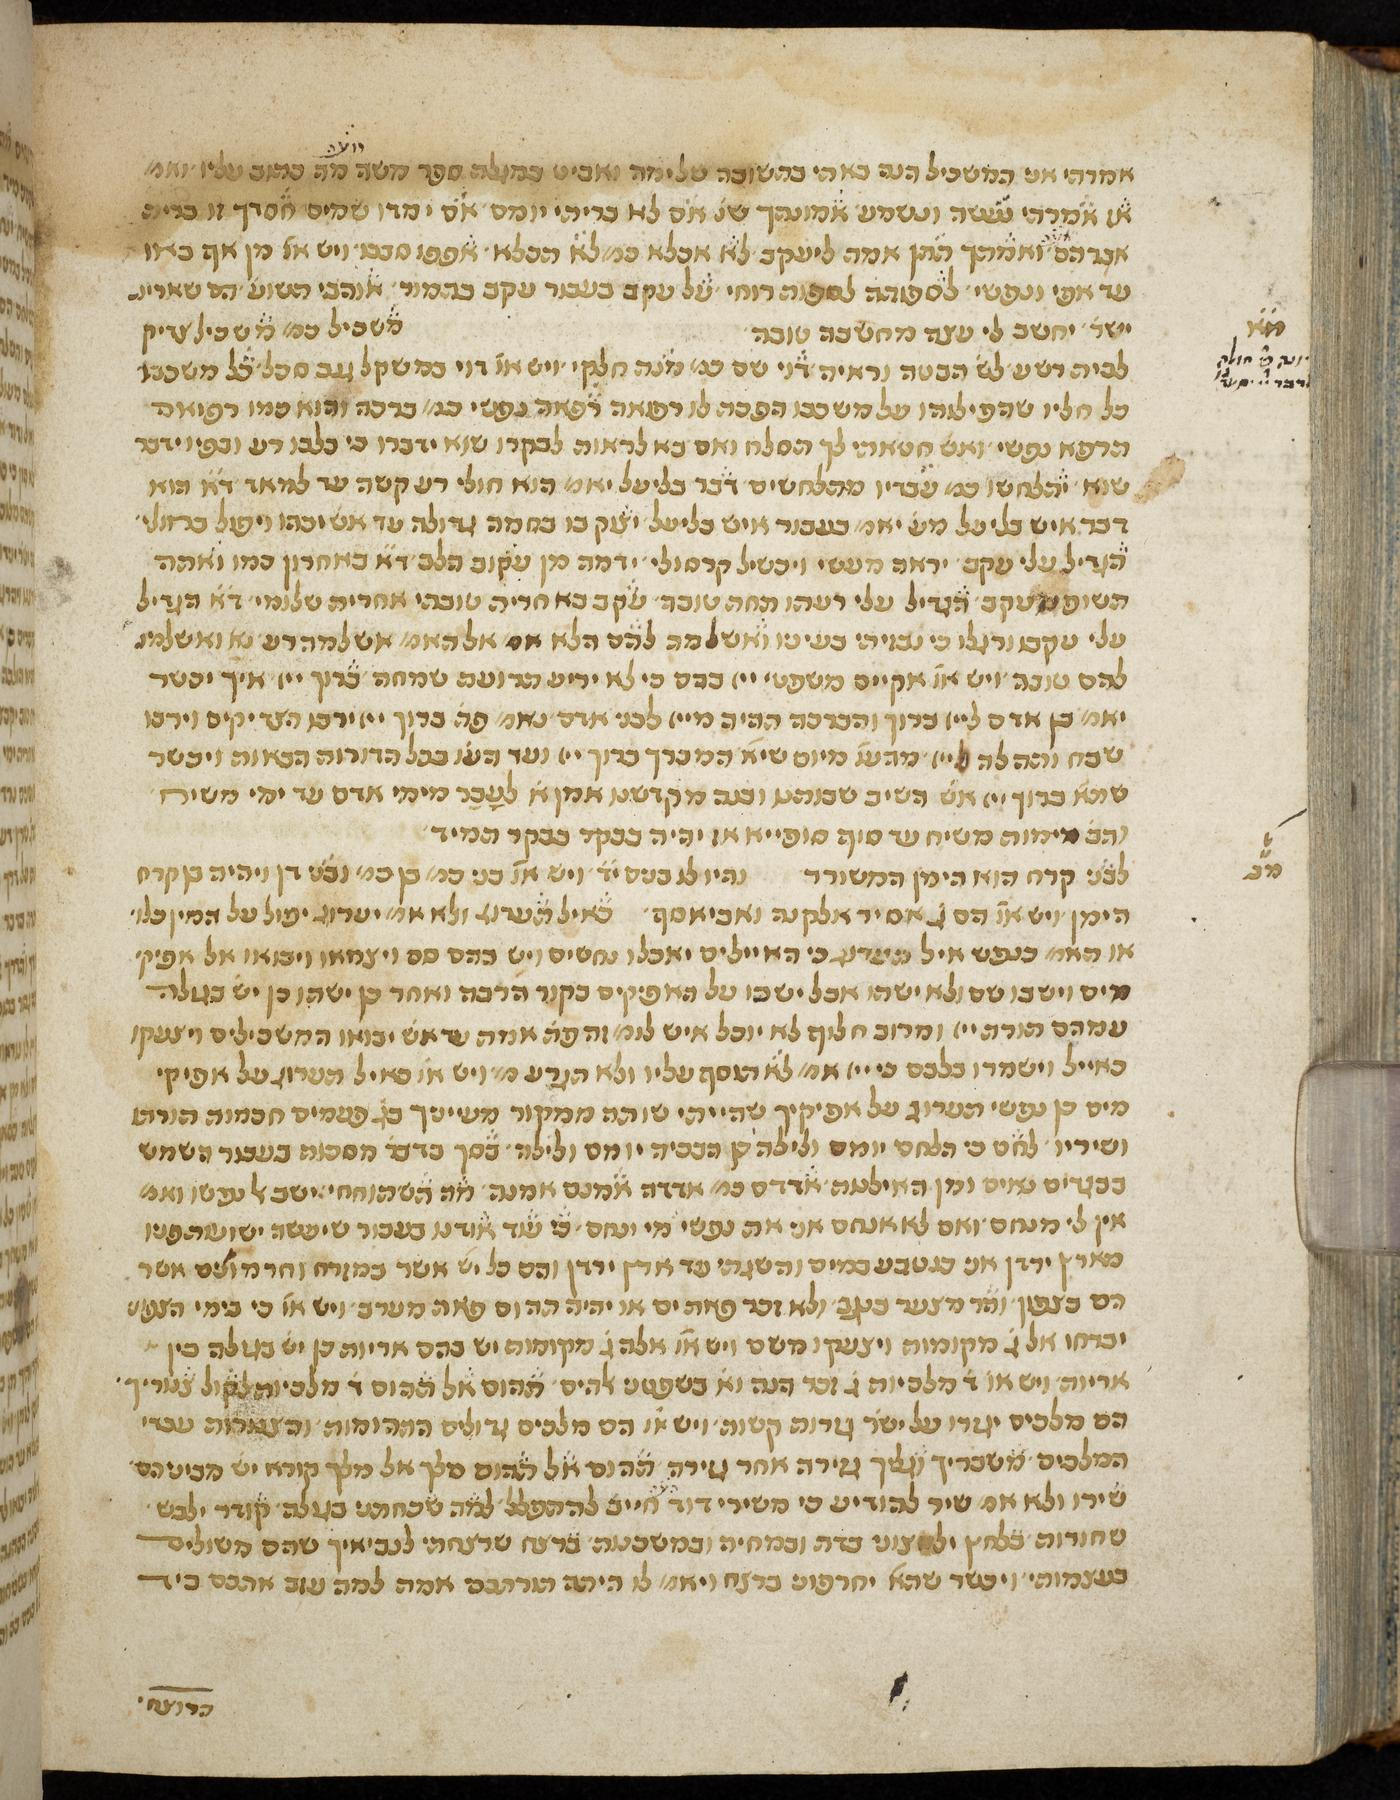 אמרתי אני המשכיל הנה באתי בתשובה שלימה ואביט במגלת ספר משה מה כתוב עליו ואמ׳
אז אמרתי נעשה ונשמע אמונתך שנ׳ אם לא בריתי יומם אם ימדו שמים חסדך זו ברית
אברהם ואמתך תתן אמת ליעקב לא אכלא כמ׳ לא תכלא אפפו סבבו ויש או׳ מן אף באו
עד אפי ונפשי לספותה לספות רוחי על עקב בעבור עקב בהמור אוהבי תשוע׳ הם שארית
ישר׳ יחשב לי עצה מחשבה טובה משכיל כמ׳ משכיל צדיק
לבית רשע לש׳ הבטה וראיה דוי שם כמ׳ מנת חלקי ויש או׳ דוי במשקל גנב סבל כל משכבו
כל חליו שהפילוהו על משכבו הפכת לו רפואה רפאה נפשי כמ׳ ברכה והוא כמו רפואת
תרפא נפשי ואש׳ חטאתי לך תסלח ואם בא לראות לבקרו שוא ידברו כי בלבו רע ובפיו ידבר
שוא יתלחשו כמ׳ עבדיו מתלחשים דבר בליעל יאמ׳ הוא חולי רע קשה עד למאד ד״א הוא
דבר איש בליעל מש׳ יאמ׳ בעבור איש בליעל יצוק בו בחמה גדולה עד אש׳ יכהו ויפול ברגלי
הגדיל עלי עקב יראה מעשי ויכשיל קרסולי ידמה מן עקוב הלב ד״א באחרון כמו ואתה
תשופנו עקב הגדיל עלי רעהו תחת טובה עקב באחרית טובתי אחרית שלומי ד״א הגדיל
עלי עקבו ורגלו כי נבזיתי בעיניו ואשלמה להם הלא אמ׳ אל תאמ׳ אשלמה רע נא ואשלמה
להם טובה ויש או׳ אקיים משפטי ייי בבם כי לא יריע תרועת שמחה ברוך ייי איך יכשר
יאמ׳ בן אדם לייי ברוך והברכה תהיה מייי לבני אדם נאמ׳ פת׳ ברוך ייי ירבו הצדיקים וירבו
שבח ותהלה לייי מהעו׳ מיום שיא׳ המברך ברוך ייי ועד העו׳ בכל הדורות הבאות ויכשר
שתא׳ ברוך ייי אש׳ השיב שבותנו ובנה מקדשנו אמן א׳ לעבר מימי אדם עד ימי משיח
והב׳ מימות משיח עד סוף סופייא או יהיה בבקר בבקר תמיד
לבני קרח הוא הימן המשורר והיו לו בנים י״ד ויש או׳ בני כמ׳ בן כמ׳ ובני דן ויהיה בן קרח
הימן ויש או׳ הם ג׳ אסיר אלקנה ואביאסף כאיל תערוג ולא אמ׳ יערוג יפול על המין כלו
או תאמ׳ כנפש איל תערוג כי האיילים יאכלו נחשים ויש בהם סם ויצמאו ויבואו אל אפיקי
מים וישבו שם ולא ישתו אבל ישבו על האפיקים בקור הרבה ואחר כן ישתו כן יש׳ בגולה
עמהם תורת ייי ומרוב חלוף לא יוכל איש לומ׳ זה פת׳ אמת עד אש׳ יבואו המשכילים ויצעקו
כאייל וישמרו בלבם כי ייי אמ׳ לא תוסף עליו ולא תגרע מ׳ ויש או׳ כאיל תערוג על אפיקי
מים כן נפשי תערוג על אפיקיך שהייתי שותה ממקור מעיינך בג׳ פעמים חכמות תורתו
ושיריו לחם כי הלחם יומם ולילה כן הבכיה יומם ולילה בסך בדמו׳ מסכות בעבור השמש
בבגדים נאים ומן האילנות אדדם כמ׳ אדדה אמנם אמנה מה תשתוחחי יישב ל׳ נפשו ואמ׳
אין לי מנחם ואם לא אנחם אני את נפשי מי ינחם כי עוד אודנו בעבור שיעשה ישועת פניו
מארץ ירדן אני כנטבע במים והשגתי עד ארץ ירדן והם כל יש׳ אשר במזרח וחרמונים אשר
הם בצפון והר מצער בנגב ולא זכר פאת ים או יהיה תהום פאת מערב ויש או׳ כי בימי השפט׳
יברחו אל ג׳ מקומות ויצעקו משם ויש או׳ אלה ג׳ מקומות יש בהם אריות כן יש׳ בגולה בין
אריות ויש או׳ ד׳ מלכיות ג׳ זכר הנה וא׳ בשפטנו להים תהום אל תהום ד׳ מלכיות לקול צנוריך
הם מלכים יגזרו על ישר׳ גזרות קשות ויש או׳ הם מלכים גדולים התהומות והצנורות עבדי
המלכים משבריך וגליך גזירה אחר גזירה תהום אל תהום מלך אל מלך קורא יש׳ מביניהם
שירו ולא אמ׳ שיר להודיע כי משירי דוד חייב להתפלל למה שכחתני בגולה קודר ילבש
שחורות בלחץ ילחצוני בדת ובמחיה ובמשכנות ברצח שרצחתי לנביאיך שהם משולים
בעצמותי ויכשר שהא׳ יחרפוני ברצח ויאמ׳ לו היתה תורתכם אמת למה עזב אתכם ביד
הרוצח